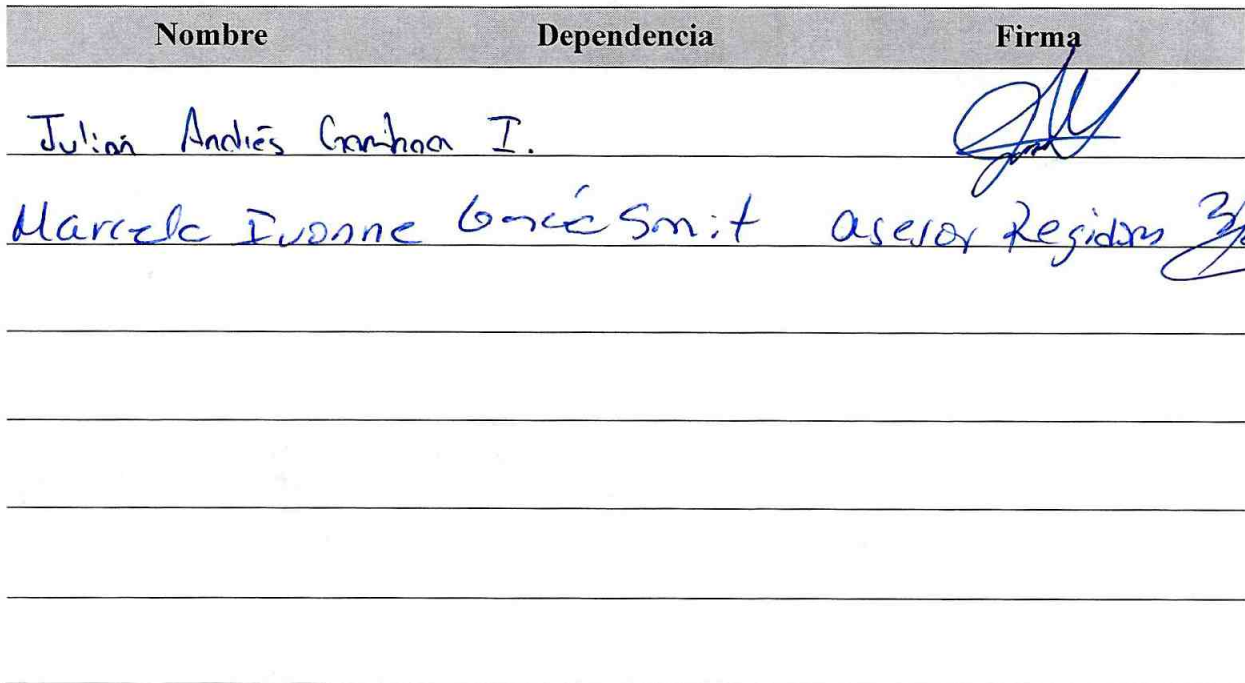 Nombre Dependencia Firma
Julián Andrés Gamboa I.
Marcela Ivonne García Smit asesor Regidora